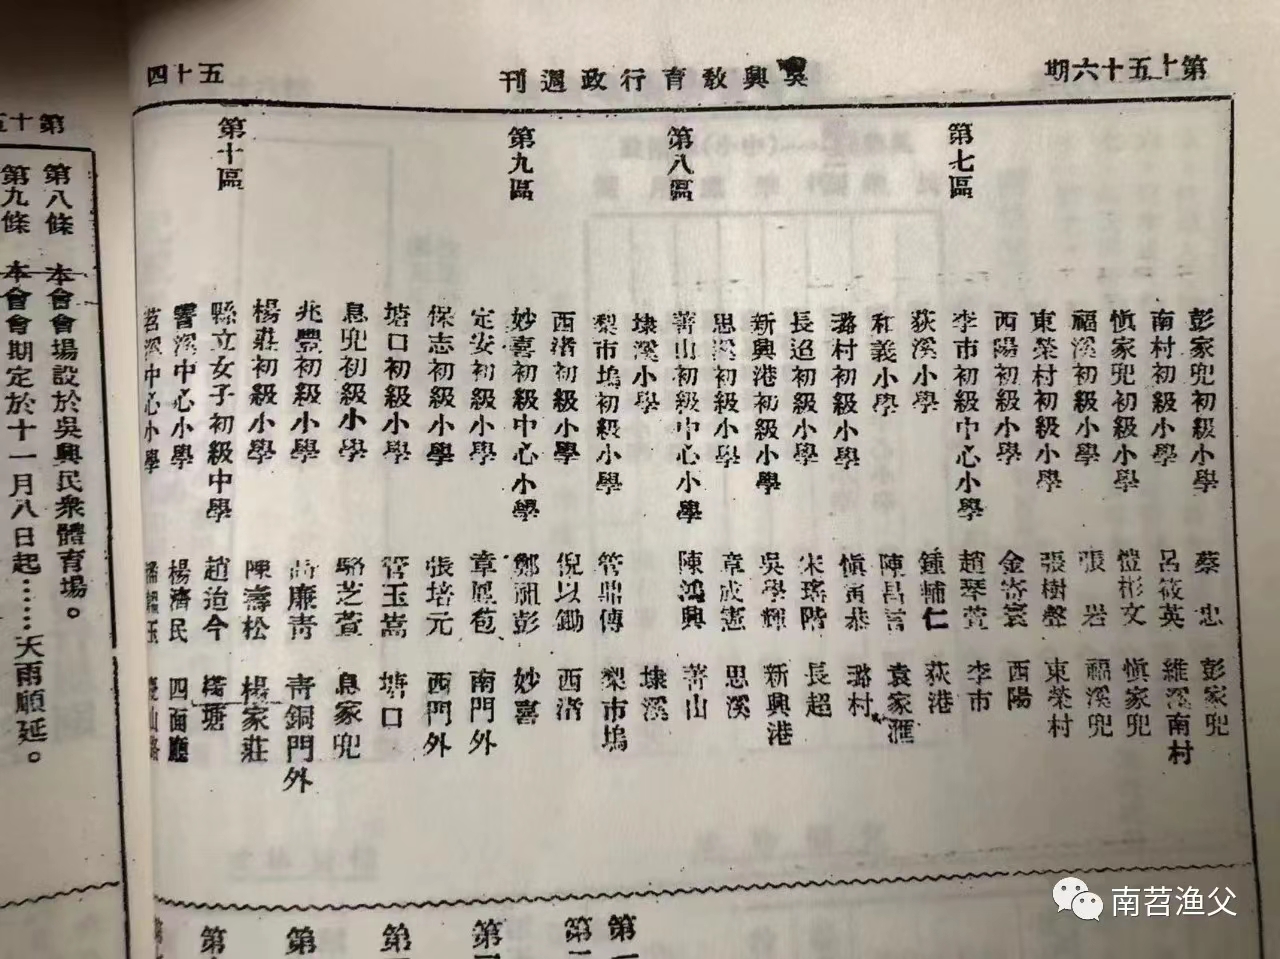 第十五十六期
吳興教育行政週刊
五十四
彭家兜初級小學 蔡忠 彭家兜
南村初級小學 呂筱英 維溪南村
愼家兜初級小學 愷彬文 愼家兜
福溪初級小學 張岩 福溪兜
東榮村初級小學 張樹聲 東榮村
西陽初級小學 金寄寰 西陽
第七區 李市初級中心小學 趙琴萱 李市
荻溪小學 鍾輔仁 荻港
和義小學 陳昌言 袁家滙
潞村初級小學 愼恭 潞村
長超初級小學 宋瑤階 長超
新興港初級小學 吳學輝 新興港
思溪初級小學 章成憲 思溪
第八區 菁山初級中心小學 陳鴻興 菁山
埭溪小學 埭溪
梨市塢初級小學 管鼎傳 梨市塢
西渚初級小學 倪以鋤 西渚
第九區 妙喜初級中心小學 鄭祖彭 妙喜
定安初級小學 章苞 南門外
保志初級小學 張培元 西門外
塘口初級小學 管玉嵩 塘口
息兜初級小學 駱芝萱 息家兜
兆豐初級小學 廉青 青銅門外
楊莊初級小學 陳濤松 楊家莊
第十區 縣立女子初級中學 趙迨今 橫塘
響溪中心小學 楊濟民 四面廳
苕溪中心小學 潘鈺
第一
第二
第
第
第
第
第十五
第八條 本會會場設於吳興民衆體育場。
第九條 本會會期定於十一月八日起……天雨順延。
南苕渔父